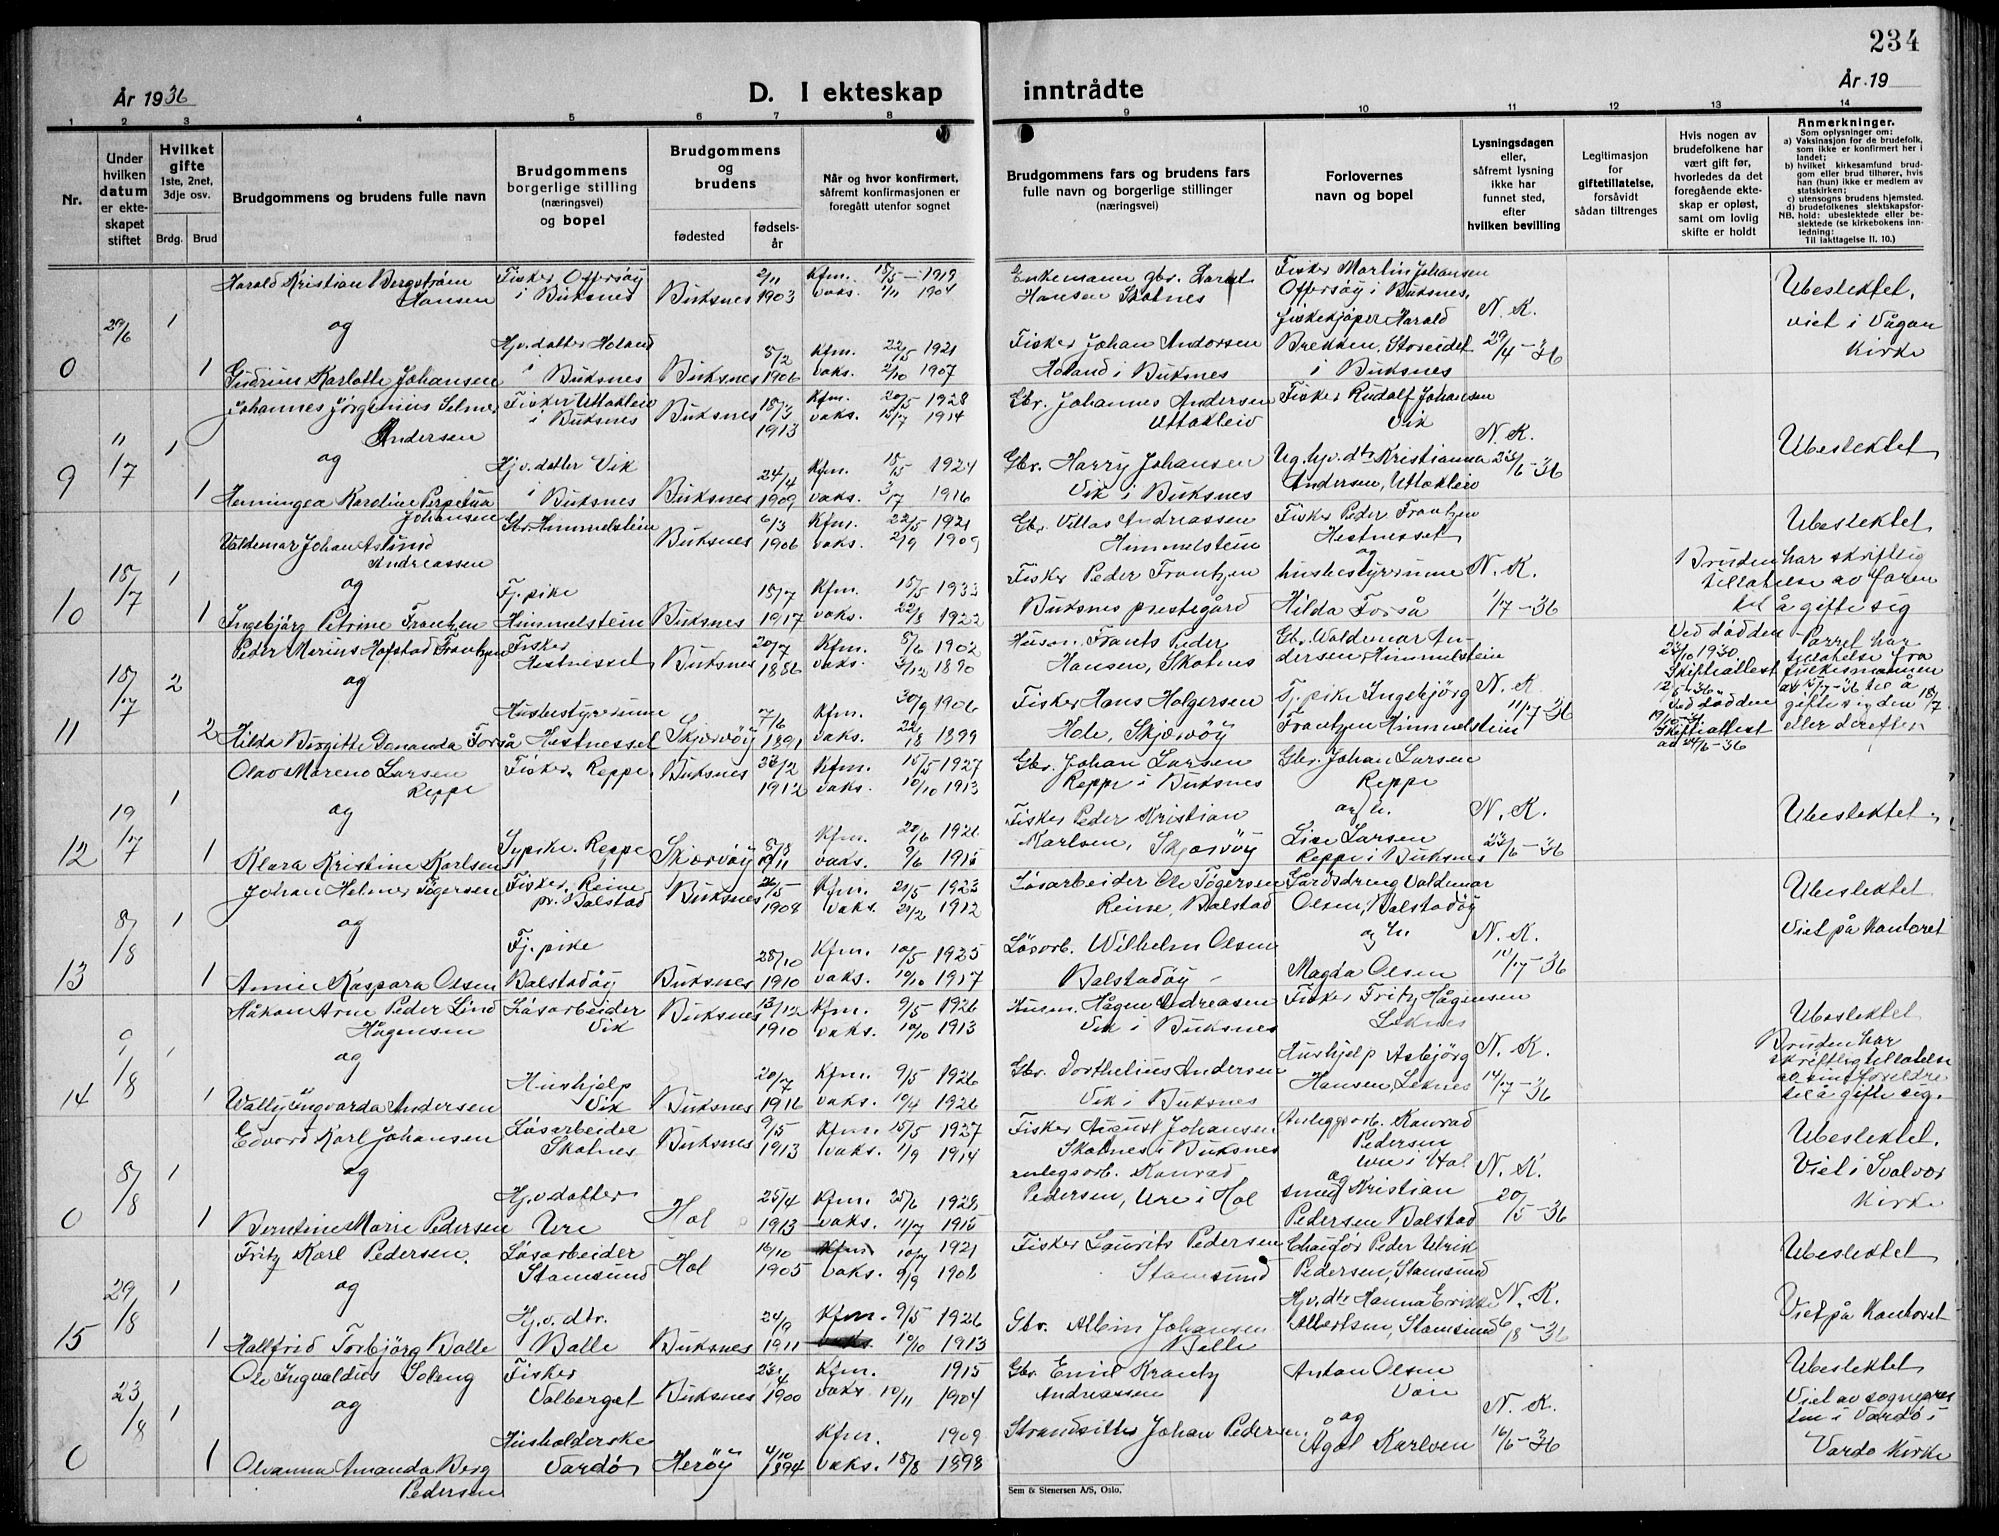 234
År 1936
D. I ekteskap inntrådte
År 19
1 2 3 4 5 6 7 8 9 10 11 12 13 14
Nr.
Under hvilken datum er ekteskapet stiftet
Hvilket gifte
1ste, 2net, 3dje osv.
Brdg. Brud
Brudgommens og brudens fulle navn
Brudgommens
borgerlige stilling
(næringsvei)
og bopel
Brudgommens
og
brudens
fødested
fødsels-
år
Når og hvor konfirmert,
såfremt konfirmasjonen er
foregått utenfor sognet
Brudgommens fars og brudens fars
fulle navn og borgerlige stillinger
(næringsvei)
Forlovernes
navn og bopel
Lysningsdagen
eller,
såfremt lysning
ikke har
funnet sted,
efter
hvilken bevilling
Legitimasjon
for
giftetillatelse,
forsåvidt
sådan tiltrenges
Hvis nogen av
brudefolkene har
vært gift før,
hvorledes da det
foregående ekte-
skap er opløst,
samt om lovlig
skifte er holdt
Anmerkninger.
Som oplysninger om:
a) Vaksinasjon for de brudefolk,
som ikke er konfirmert her i
landet;
b) hvilket kirkesamfund brud-
gom eller brud tilhører, hvis
han (hun) ikke er medlem av
statskirken;
c) utensogns brudens hjemsted.
d) brudefolkenes slektskapsfor-
NB. hold: ubeslektede eller be-
slektede (se kirkebokens inn-
ledning:
Til iakttagelse II. 10.)
0
29/6
1
Harald Kristian Bergstrøm
Hansen
Fisker, Offersøy
i Buksnes
Buksnes
2/11
1903
Kfm. 18/5 - 1919
vaks. 1904
Enkemann gbr.
Hansen Skotnes
Fisker Martin Johansen
Offersøy i Buksnes,
fiskekjøper Harald
Brekken, Storeidet
i Buksnes
N. K.
29/4 - 36
Ubeslektet,
viet i Vågan
Kirke
og
1
Gudrun Karlotte Johansen
Hjv. datter Holand
i Buksnes
Buksnes
8/2
1906
Kfm. 22/5 1921
vaks. 2/10 1907
Fisker Johan Andorsen
Holand i Buksnes
9
" /7
1
Johannes Jørgenius Selmer
Andersen
Fisker Uttakleiv
i Buksnes
Buksnes
18/3
1913
Kfm. 20/5 1928
vaks. 15/7 1914
Gbr. Johannes Andersen
Uttakleiv
Fisker Rudolf Johansen
Vik
Ug. hjv. dtr Kristianna
Andersen, Uttakleiv
N. K.
23/6 - 36
Ubeslektet
og
1
Henningea Karoline Perpetua
Johansen
Hjv. datter Vik
i Buksnes
Buksnes
24/4
1909
Kfm. 18/5 1924
vaks. 3/7 1916
Gbr. Harry Johansen
Vik i Buksnes
10
18/7
1
Valdemar Johan Aslund
Andreassen
Gbr. Himmelstein
Buksnes
6/3
1906
Kfm. 22/5 1921
vaks. 2/9 1909
Gbr. Villas Andreassen
Himmelstein
Fisker Peder Frantzen
Hestnesset
og
husbestyrerinne
Hilda Forså
N. K.
1/7 - 36
Ubeslektet
Bruden har skriftlig
tillatelse av faren
til å gifte sig
og
1
Ingebjørg Petrine Frantzen
Fj. pike
Himmelstein
Buksnes
18/7
1917
Kfm. 18/5 1933
vaks. 22/8 1922
Fisker Peder Frantzen
Buksnes prestegård
11
18/7
2
Peder Marius Hofstad Frantzen
Fisker
Hestnesset
Buksnes
20/7
1886
Kfm. 8/6 1902
vaks. 31/12 1890
Husm. Frants Peder
Hansen, Skotnes
Gbr. Waldemar An-
dersen, Himmelstein
Fj. pike Ingebjørg
Frantzen Himmelstein
N. K.
11/7 36
Ved døden
23/10 1930
Skifteattest
12/5 - 36
Ved døden
19/10 - 31
Skifteattest
ad 24/6 - 36
Parret har
tillatelse fra
fylkesmannen
av 15/7 - 36 til å
gifte sig den 18/7
eller derefter
og
2
Hilda Birgitte Donanda Forså
Husbestyrerinne
Hestnesset
Skjærvøy
7/6
1891
Kfm. 30/9 1906
vaks. 22/8 1899
Fisker Hans Holgersen
Hode, Skjærvøy
12
19/7
1
Olav Moreno Larsen
Reppe
Fisker, Reppe
Buksnes
23/2
1912
Kfm. 15/5 1927
vaks. 10/10 1913
Gbr. Johan Larsen
Reppe i Buksnes
Gbr. Johan Larsen
Reppe
og h.
Lise Larsen
Reppe i Buksnes
N. K.
23/6 - 36
Ubeslektet
og
1
Klara Kristine Karlsen
Sypike. Reppe
Skjærvøy
8/8
1911
Kfm. 20/6 1926
vaks. 9/6 1915
Fisker Peder Kristian
Karlsen, Skjærvøy
13
8/8
1
Johan Helmer Tøgersen
Fisker, Reine
pr. Balstad
Buksnes
26/5
1908
Kfm. 20/5 1923
vaks. 20/2 1912
Løsarbeider Ole Tøgersen
Reine, Balstad
Gårdsdreng Valdemar
Olsen, Balstadøy
og h.
Magda Olsen
N. K.
10/7 - 36
Ubeslektet
Viet på kontoret
og
1
Annie Kaspara Olsen
Fj. pike
Balstadøy
Buksnes
28/10
1910
Kfm. 10/5 1925
vaks. 10/10 1917
Løsarb. Wilhelm Olsen
Balstadøy
14
9/8
1
Håkon Arne Peder Lind
Hågensen
Løsarbeider
Vik
Buksnes
13/12
1910
Kfm. 9/5 1926
vaks. 10/10 1913
Husm. Hågen Andreasen
Vik i Buksnes
Fisker Fritz Hågensen
Leknes
Hushjelp Asbjørg
Hansen, Leknes
N. K.
14/7 - 36
Ubeslektet
Bruden har
skriftlig tillatelse
av sine foreldre
til å gifte sig.
og
1
Wally Ingvarda Andersen
Hushjelp
Vik
Buksnes
20/7
1916
Kfm. 9/5 1926
vaks. 10/4 1926
Gbr. Dorthelius Andersen
Vik i Buksnes
0
8/8
1
Edvard Karl Johansen
Løsarbeider
Skotnes
Buksnes
9/5
1913
Kfm. 15/5 1927
Vaks. 1/9 1914
Fisker August Johansen
Skotnes i Buksnes
Anleggsarb. Konrad
Pedersen
Ure i Hol
og
smed Kristian
Pedersen Balstad
N. K.
20/5 - 36
Ubeslektet.
Viet i Svolvær
Kirke
og
1
Berntine Marie Pedersen
Hjv. datter
Ure
Hol
25/4
1913
Kfm. 25/6 1928
vaks. 11/7 1915
anlegsarb. Konrad
Pedersen, Ure i Hol
15
29/8
1
Fritz Karl Pedersen.
Løsarbeider
Stamsund
Hol
10/10
1905
Kfm. 10/7 1921
vaks. 9/9 1908
Fisker Laurits Pedersen
Stamsund
Chaufør Peder Ulrik
Pedersen, Stamsund
Hjv. dtr Hanna Erikke
Albertsen, Stamsund
N. K.
6/8 - 36
Ubeslektet
Viet på kontoret
og
1
Hallfrid Torbjørg Balle
Hj. v. dtr.
Balle
Buksnes
24/9
1911
Kfm. 9/5 1926
vaks. 10/10 1913
Gbr. Albin Johansen
Balle
0
23/8
1
Ole Ingvaldus Soleng
Fisker
Valberget
Buksnes
23/4
1900
Kfm. 1915
vaks. 10/11 1904
Gbr. Emil Krantz
Andreassen
Anton Olsen
og
Ågot Karlsen
N. K.
16/6 - 36
Ubeslektet
Viet av sognepres
ten i Vardø i
Vardø Kirke
og
1
Olvanna Amanda Berg
Pedersen
Husholderske
Vardø
Herøy
4/10
1894
Kfm. 1909
vaks. 18/8 1898
Strandsitter Johan Pedersen
Sem & Stenersen A/S, Oslo.